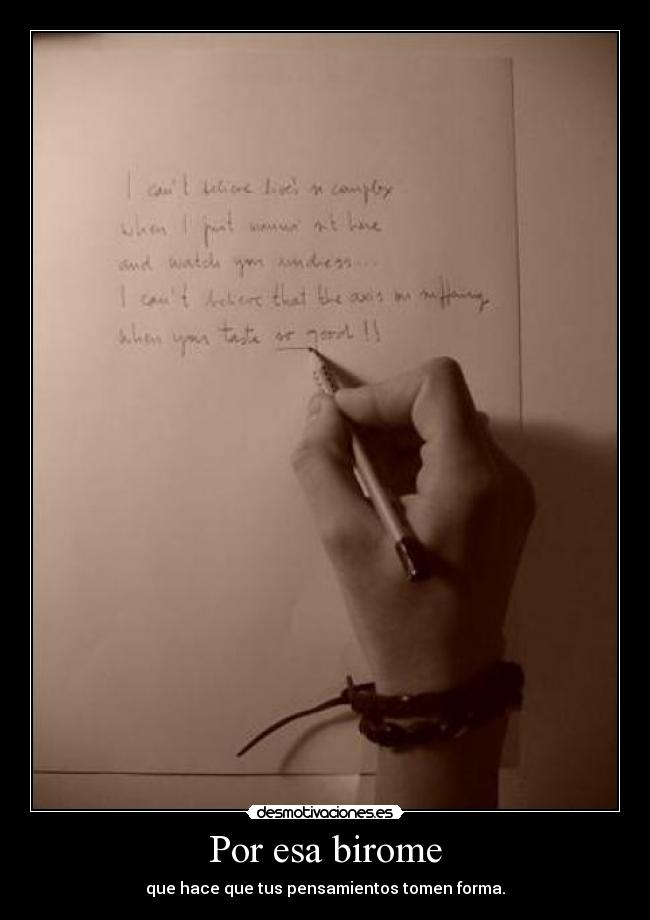 I can't believe live's so complex
when I just wanna' sit here
and watch you undress...
I can't believe that the axis on suffering
when your taste so good !!
desmotivaciones.es
Por esa birome
que hace que tus pensamientos tomen forma.